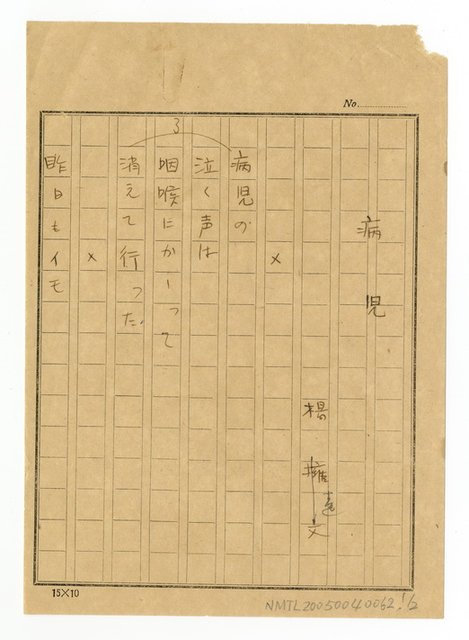 No.
病児
楊
×
3
病児の
泣く声は
咽喉にかーって
消えて行った
×
昨日もイモ
15×10
NMTL20050040062 1/2